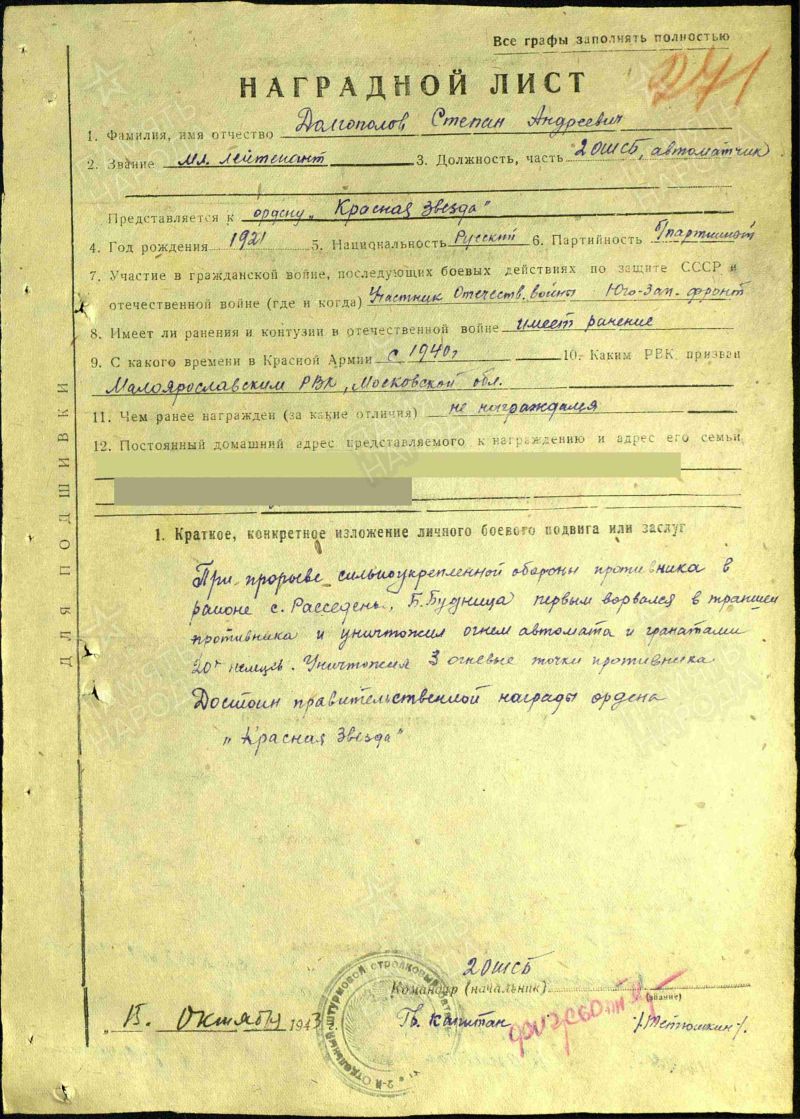 Все графы заполнять полностью
НАГРАДНОЙ ЛИСТ
271
1. Фамилия, имя отчество Долгополов Степан Андреевич
2. Звание мл. лейтенант 3. Должность, часть 2 ОШСБ, автоматчик
Представляется к ордену „Красная Звезда"
4. Год рождения 1921 5. Национальность Русский 6. Партийность б/партийный
7. Участие в гражданской войне, последующих боевых действиях по защите СССР и
отечественной войне (где и когда) Участник Отечеств. войны Юго-Зап. фронт
8. Имеет ли ранения и контузии в отечественной войне имеет ранение
9. С какого времени в Красной Армии с 1940 г 10. Каким РВК призван
Малоярославским РВК, Московской обл.
11. Чем ранее награжден (за какие отличия) не награждался
12. Постоянный домашний адрес представляемого к награждению и адрес его семьи
ДЛЯ ПОДШИВКИ
1. Краткое, конкретное изложение личного боевого подвига или заслуг
При прорыве сильноукрепленной обороны противника в
районе с. Расседень, Б. Будница первым ворвался в траншеи
противника и уничтожил огнем автомата и гранатами
20 немцев. Уничтожил 3 огневые точки противника
Достоин правительственной награды ордена
„Красная Звезда"
2 ОШСБ
Командир (начальник)
(звание)
„15. Октября 1943 г.
Гв. капитан /Тетюшкин/.
2-й ОТДЕЛЬНЫЙ ШТУРМОВОЙ СТРЕЛКОВЫЙ
ПАМЯТЬ НАРОДА